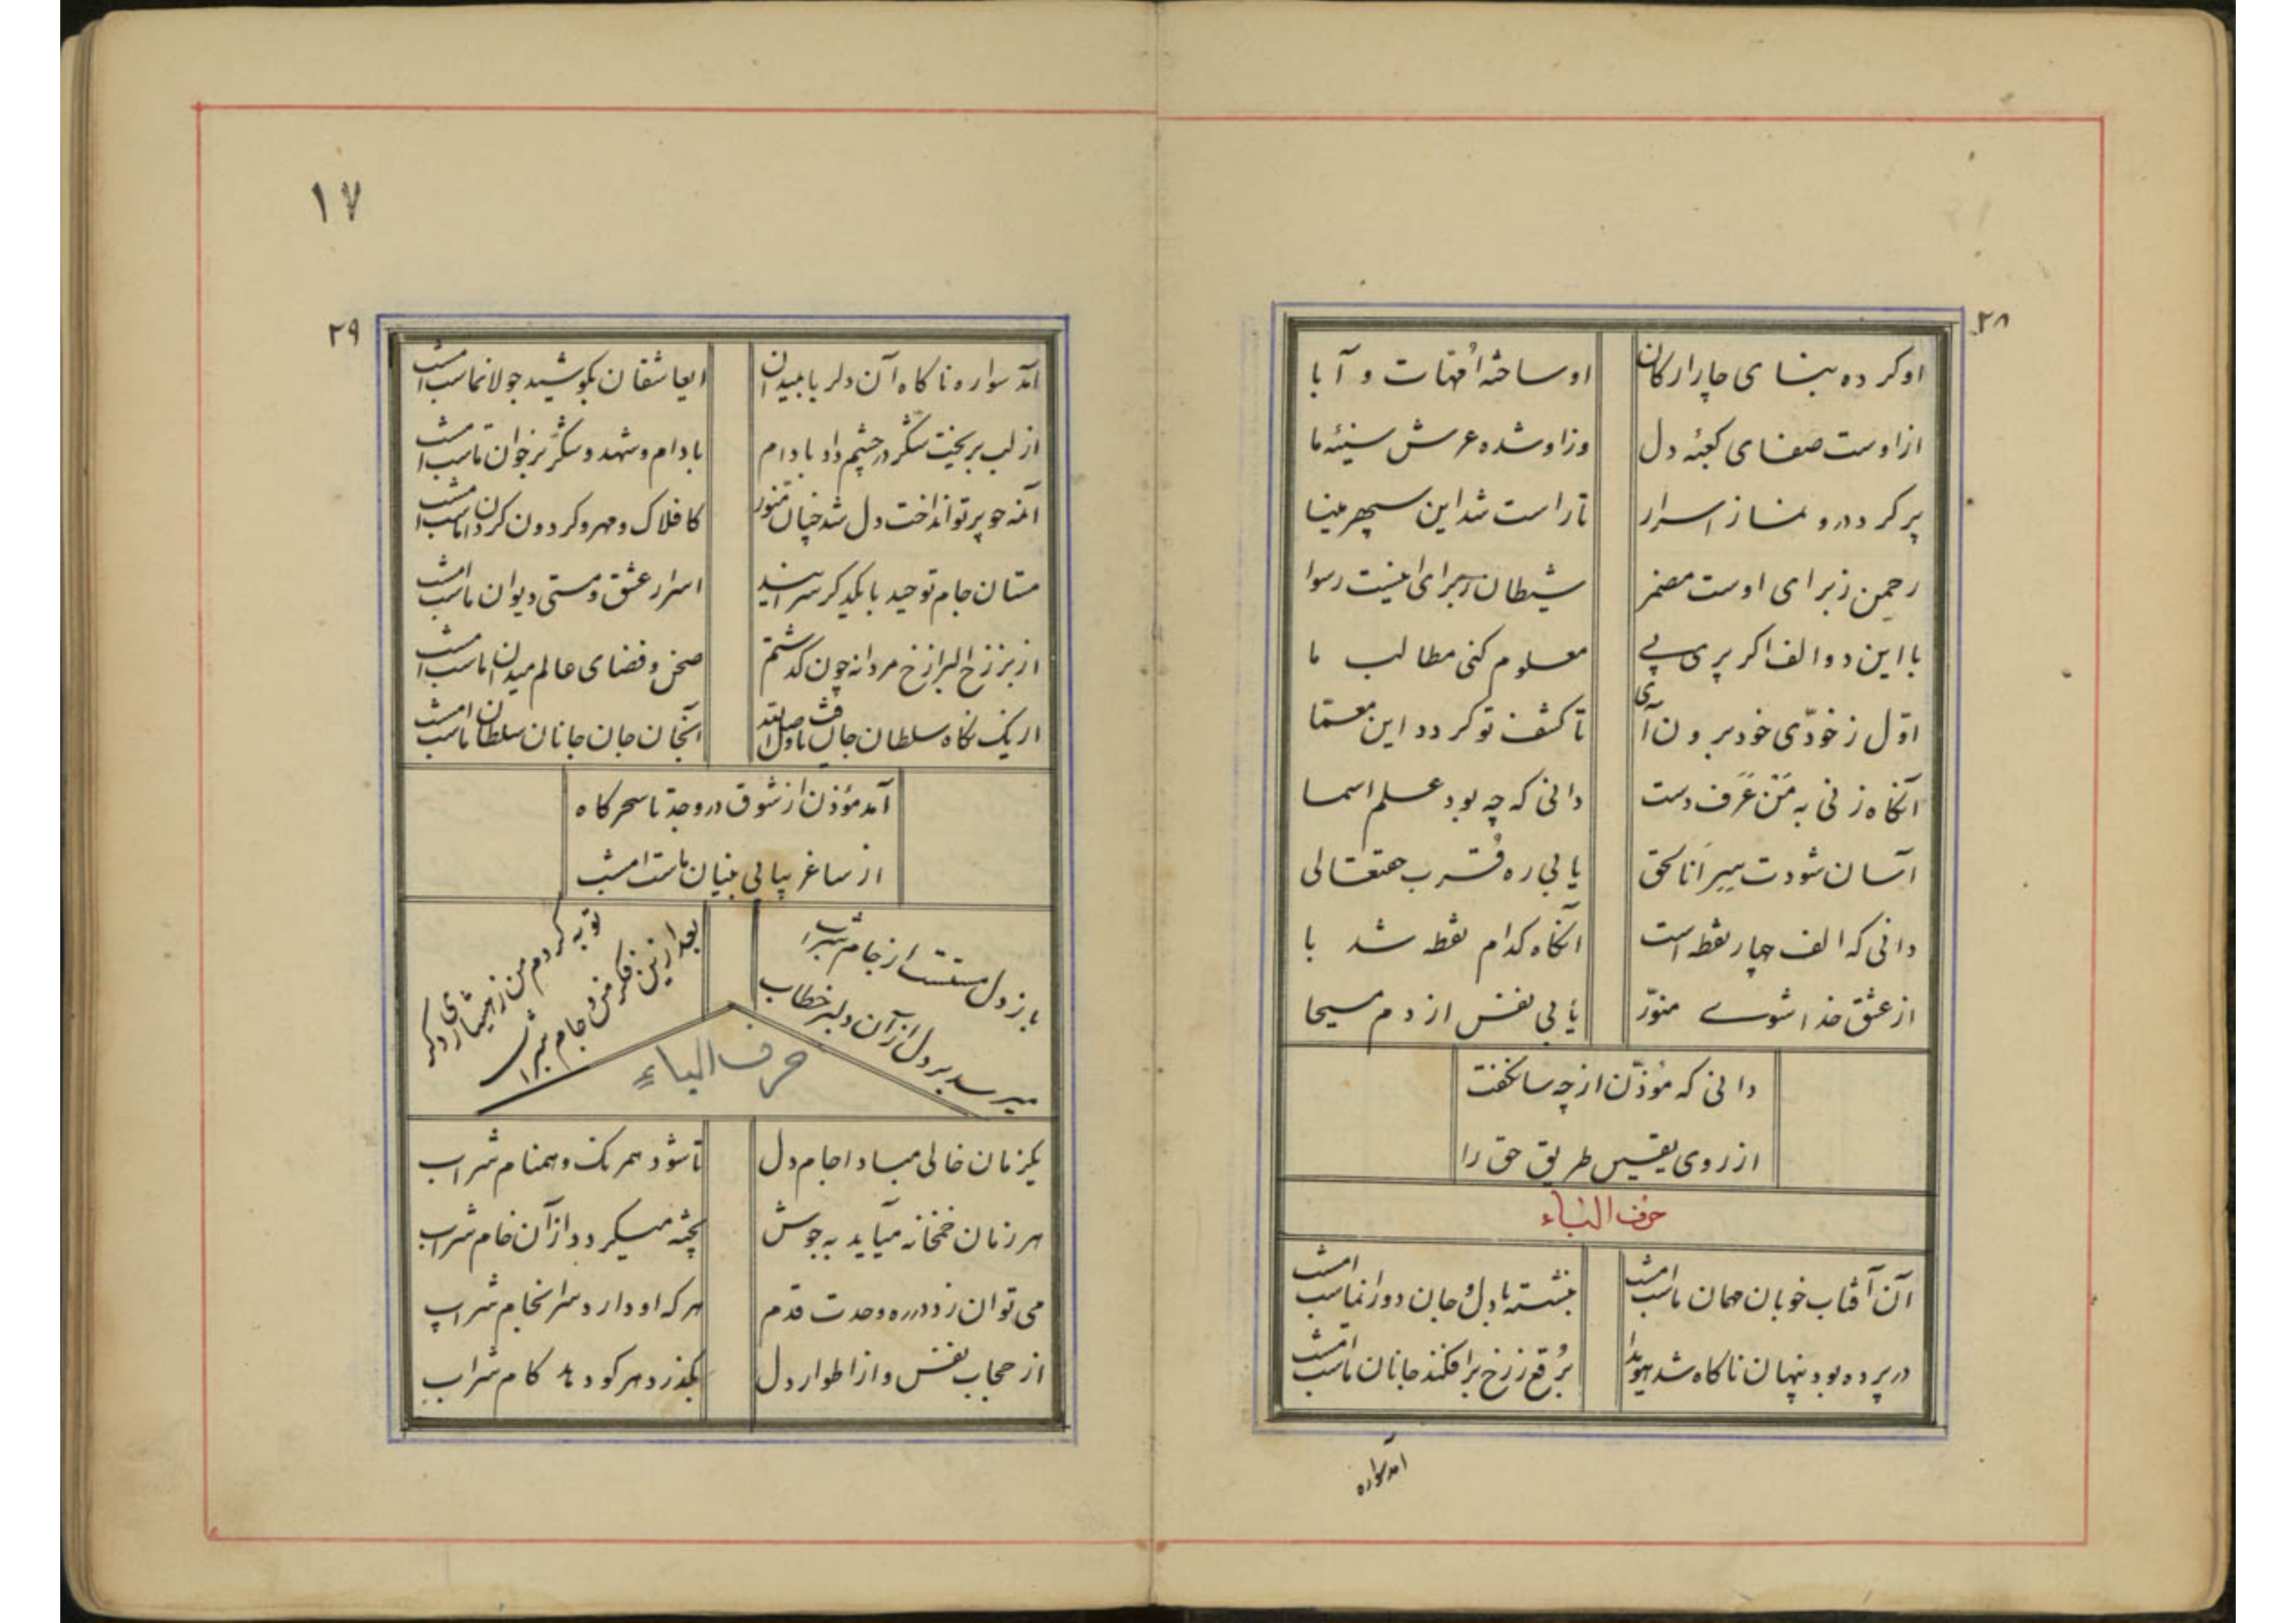 ۲۸
او کرده بنای چار ارکان
او ساخته اُمّهات و آبا
از اوست صفای کعبهٔ دل
وز او شده عرش سینهٔ ما
پر کرد درو نماز اسرار
تا راست شد این سپهر مینا
رحمن ز برای اوست مضمر
شیطان ز برای اینست رسوا
با این دو الف اگر پری پی
معلوم کنی مطالب ما
اوّل ز خودّی خود برون آی
تا کشف تو گردد این معمّا
آنگاه زنی به مَنْ عَرَف دست
دانی که چه بود علم اسما
آسان شودت سِرِ اَنا الحق
یابی ره قُرب حقتعالی
دانی که الف چهار نقطه است
آنگاه کدام نقطه شد با
از عشق خدا شوے منوّر
یابی نفس از دم مسیحا
دانی که مُوذّن از چه سان گفت
از روی یقین طریق حق را
حرف الباء
آن آفتاب خوبان مهمان ماست امشب
بنشسته با دل و جان دوران ماست امشب
در پرده بود پنهان ناگاه شد هویدا
بُرقع ز رخ برافکند جانان ماست امشب
آمد سواره
۱۷
۲۹
آمد سواره ناگاه آن دلربا بمیدان
ایعاشقان بکوشید جولان ماست امشب
از لب بریخت شکّر در چشم داد بادام
بادام و شهد و شکّر بر خوان ماست امشب
آنمه چو پرتو انداخت دل شد چنان منور
کافلاک و مهر و گردون گردان ماست امشب
مستان جام توحید با یکدگر سرایید
اسرار عشق و مستی دیوان ماست امشب
از برزخ البرازخ مردانه چون گذشتم
صحن و فضای عالم میدان ماست امشب
از یک نگاه سلطان جان یافت وصل
آنجان جان جانان سلطان ماست امشب
آمد مؤذن از شوق در وجد تا سحرگاه
از ساغر پیاپی مستان ماست امشب
باز دل مستست از جام شراب
میرسد بر دل از آن دلبر خطاب
توبه کردم من ز هشیاری دگر
بعد ازین فکر من و جام شراب
حرف الباءِ
یکزمان خالی مبادا جام دل
تا شود همرنگ و همنام شراب
هر زمان خمخانه میآید به جوش
پخته میگردد از آن خام شراب
می توان زد در ره وحدت قدم
هر که او دارد سرانجام شراب
از حجاب نفس و از اطوار دل
بگذرد هر کو دهد کام شراب